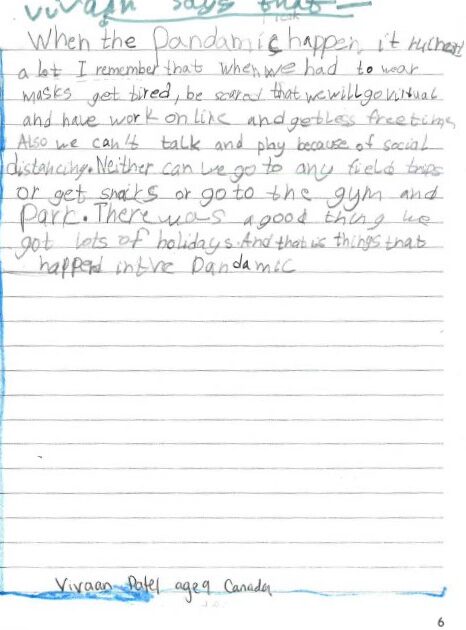 vivaan says that
When the Pandamic happen it ruined
a lot I remember that when we had to wear
masks get tired, be scared that we will go virtual
and have work online and get less free time
Also we can't talk and play because of social
distancing. Neither can we go to any field trips
or get snacks or go to the gym and
Park. There was a good thing we
got lots of holidays. And that is things that
happend in the Pandamic
Vivaan Patel age 9 Canada
6